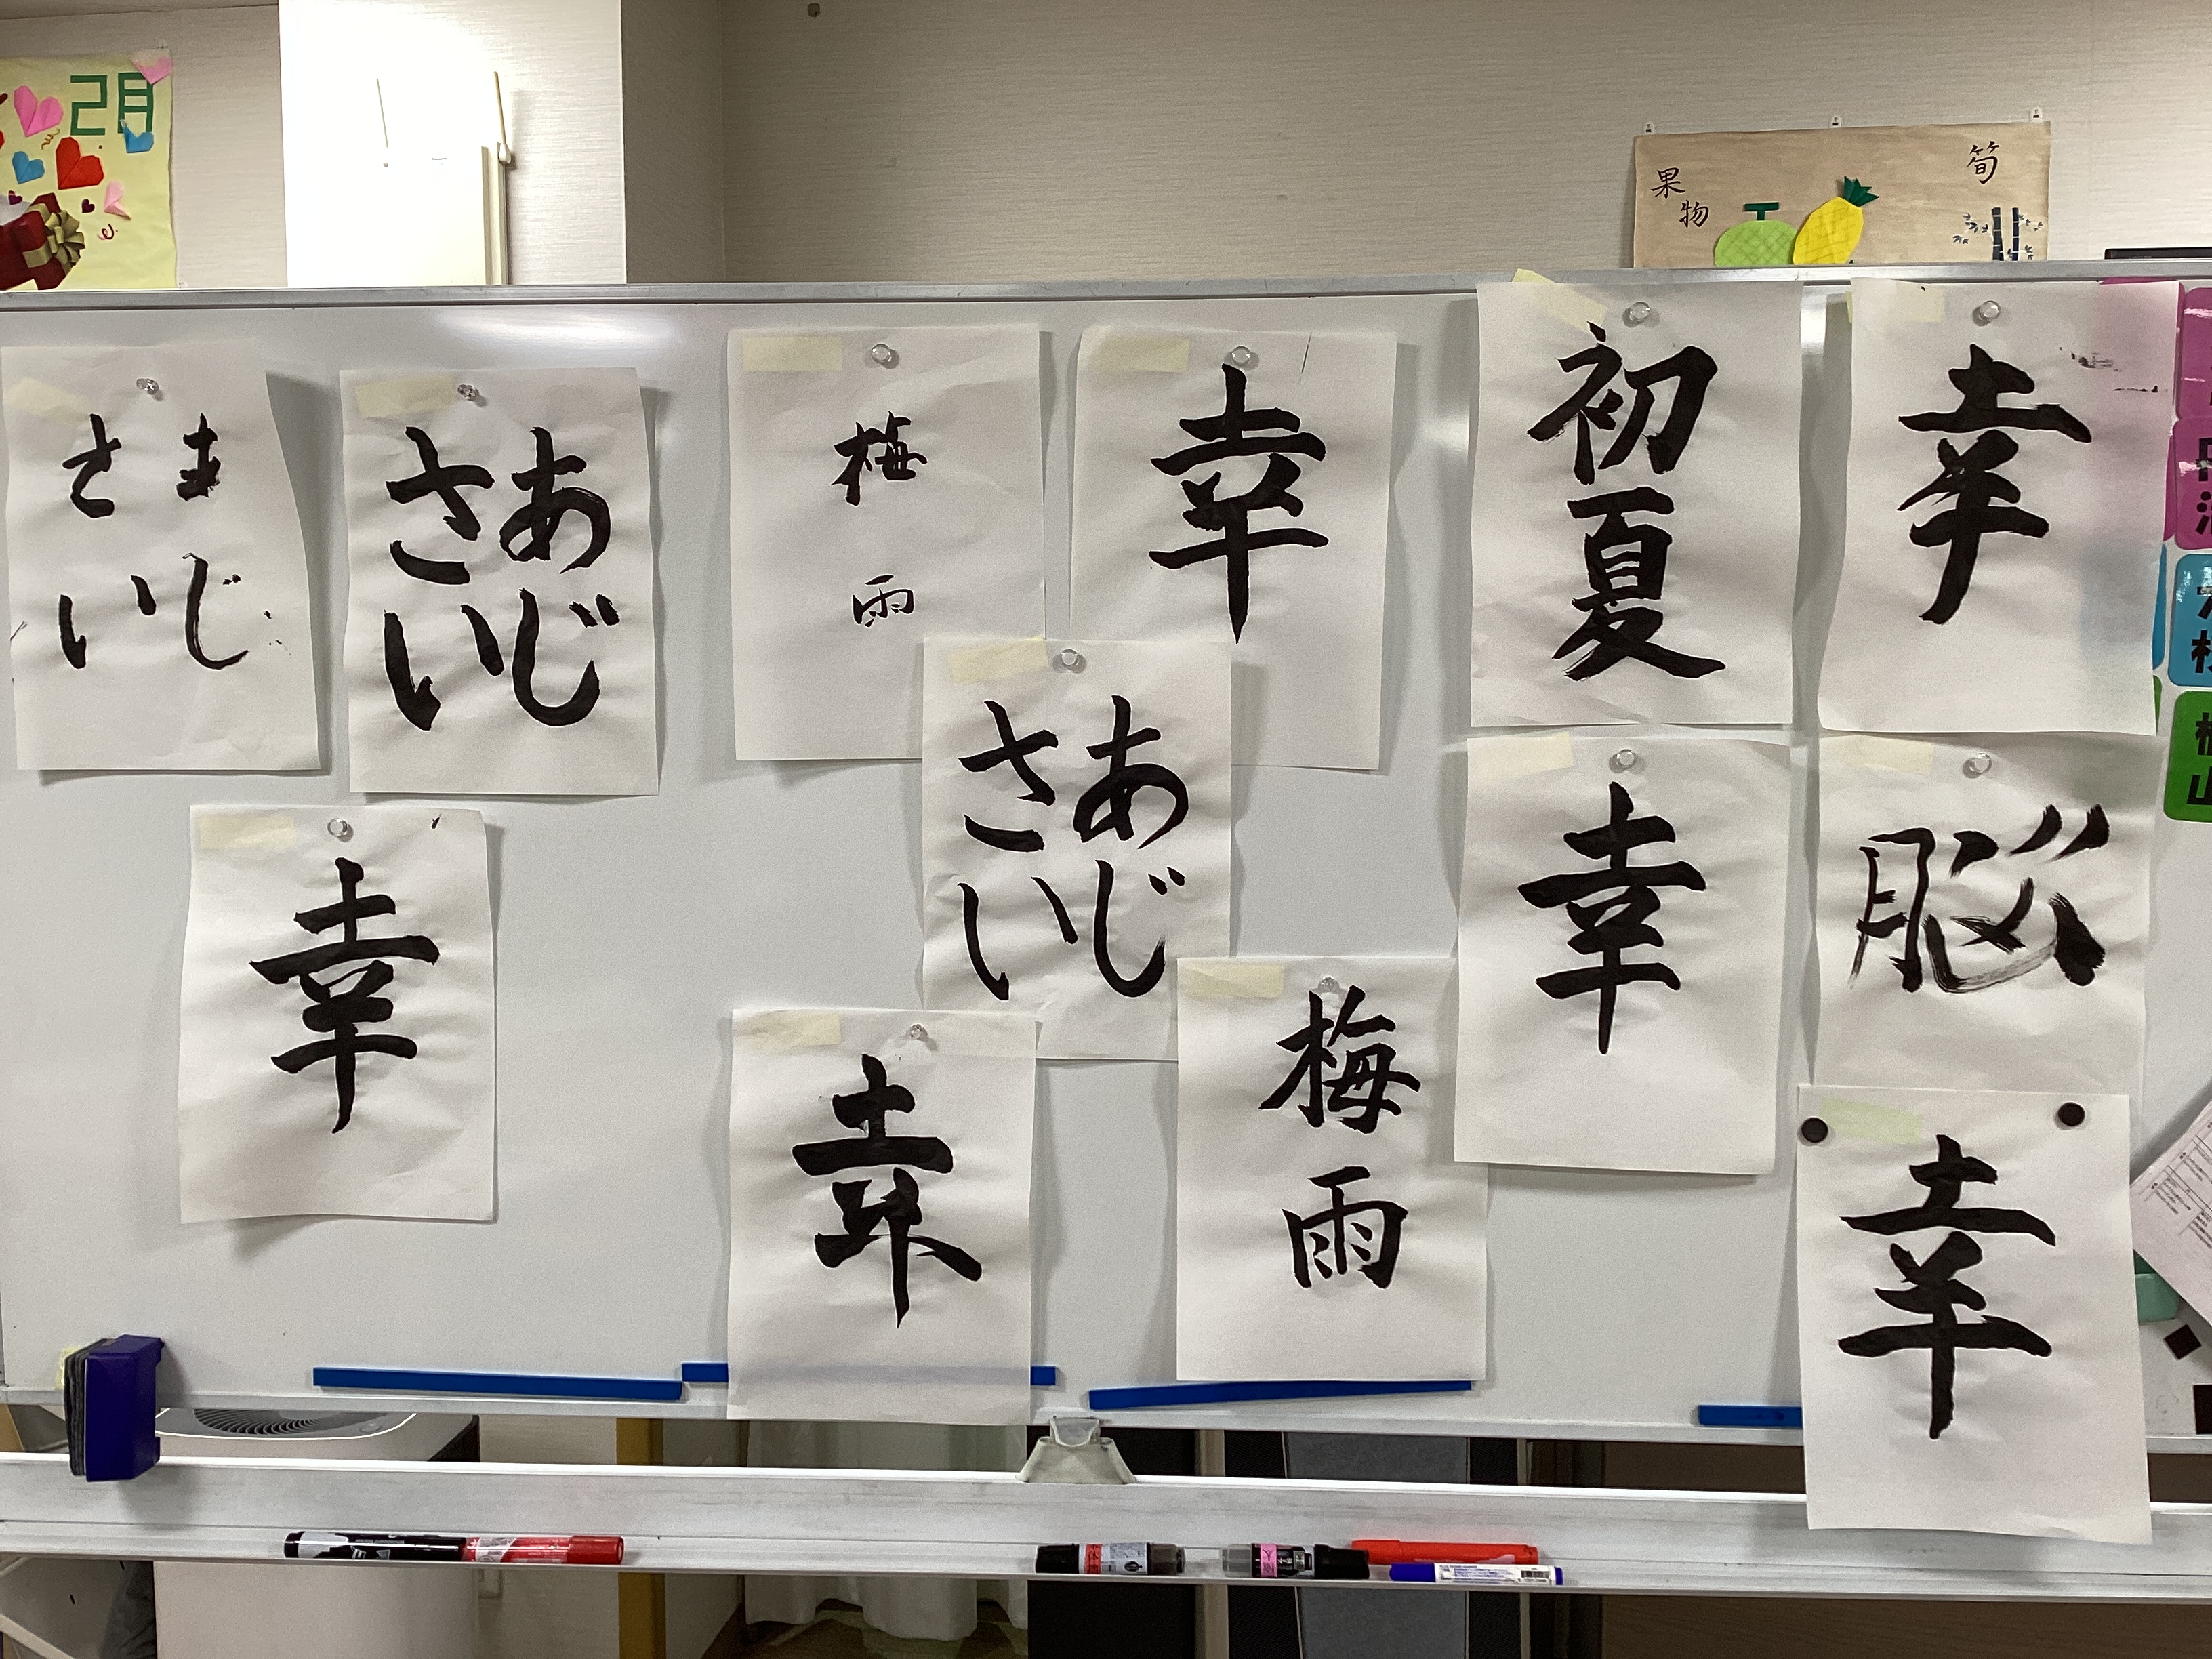 2月
果物
筍
さ
い
じ
あじ
さい
梅雨
幸
初夏
幸
あじ
さい
幸
脳
幸
幸
梅雨
幸